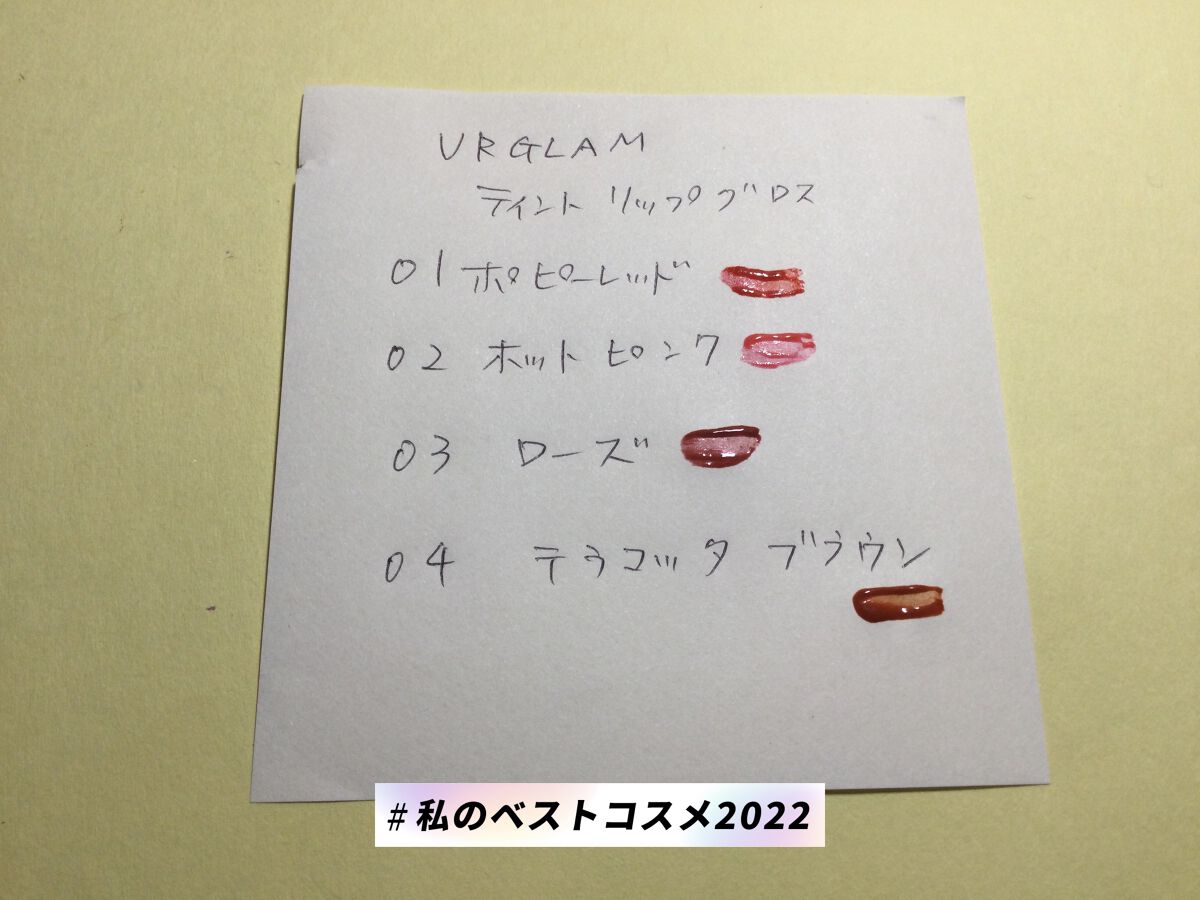 URGLAM
ティント リップグロス
01 ポピーレッド
02 ホットピンク
03 ローズ
04 テラコッタ ブラウン
#私のベストコスメ2022